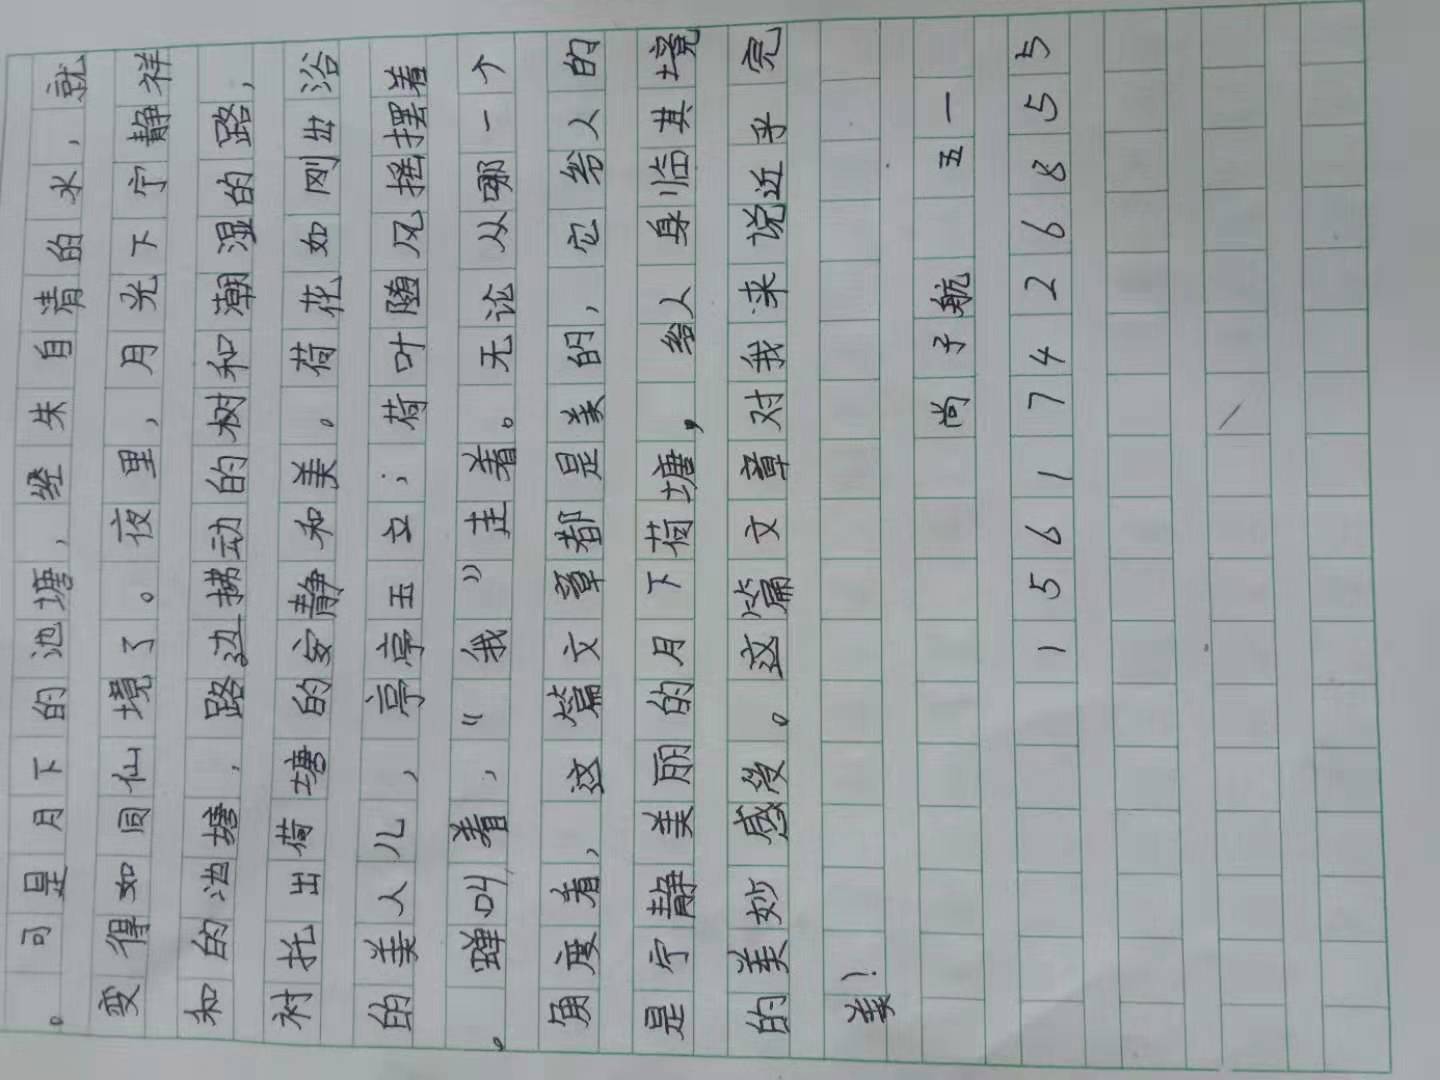 。可是月下的池塘，经朱自清的水，就
变得如同仙境了。夜里，月光下宁静祥
和的池塘，路边拂动的树和潮湿的路，
衬托出荷塘的安静和美。荷花如刚出浴
的美人儿，亭亭玉立；荷叶随风摇摆着
。蝉叫着，“我”走着。无论从哪一个
角度看，这篇文章都是美的，它给人的
是宁静美丽的月下荷塘，给人身临其境
的美妙感受。这篇文章对我来说近乎完
美！
尚子航 五一
15617426855